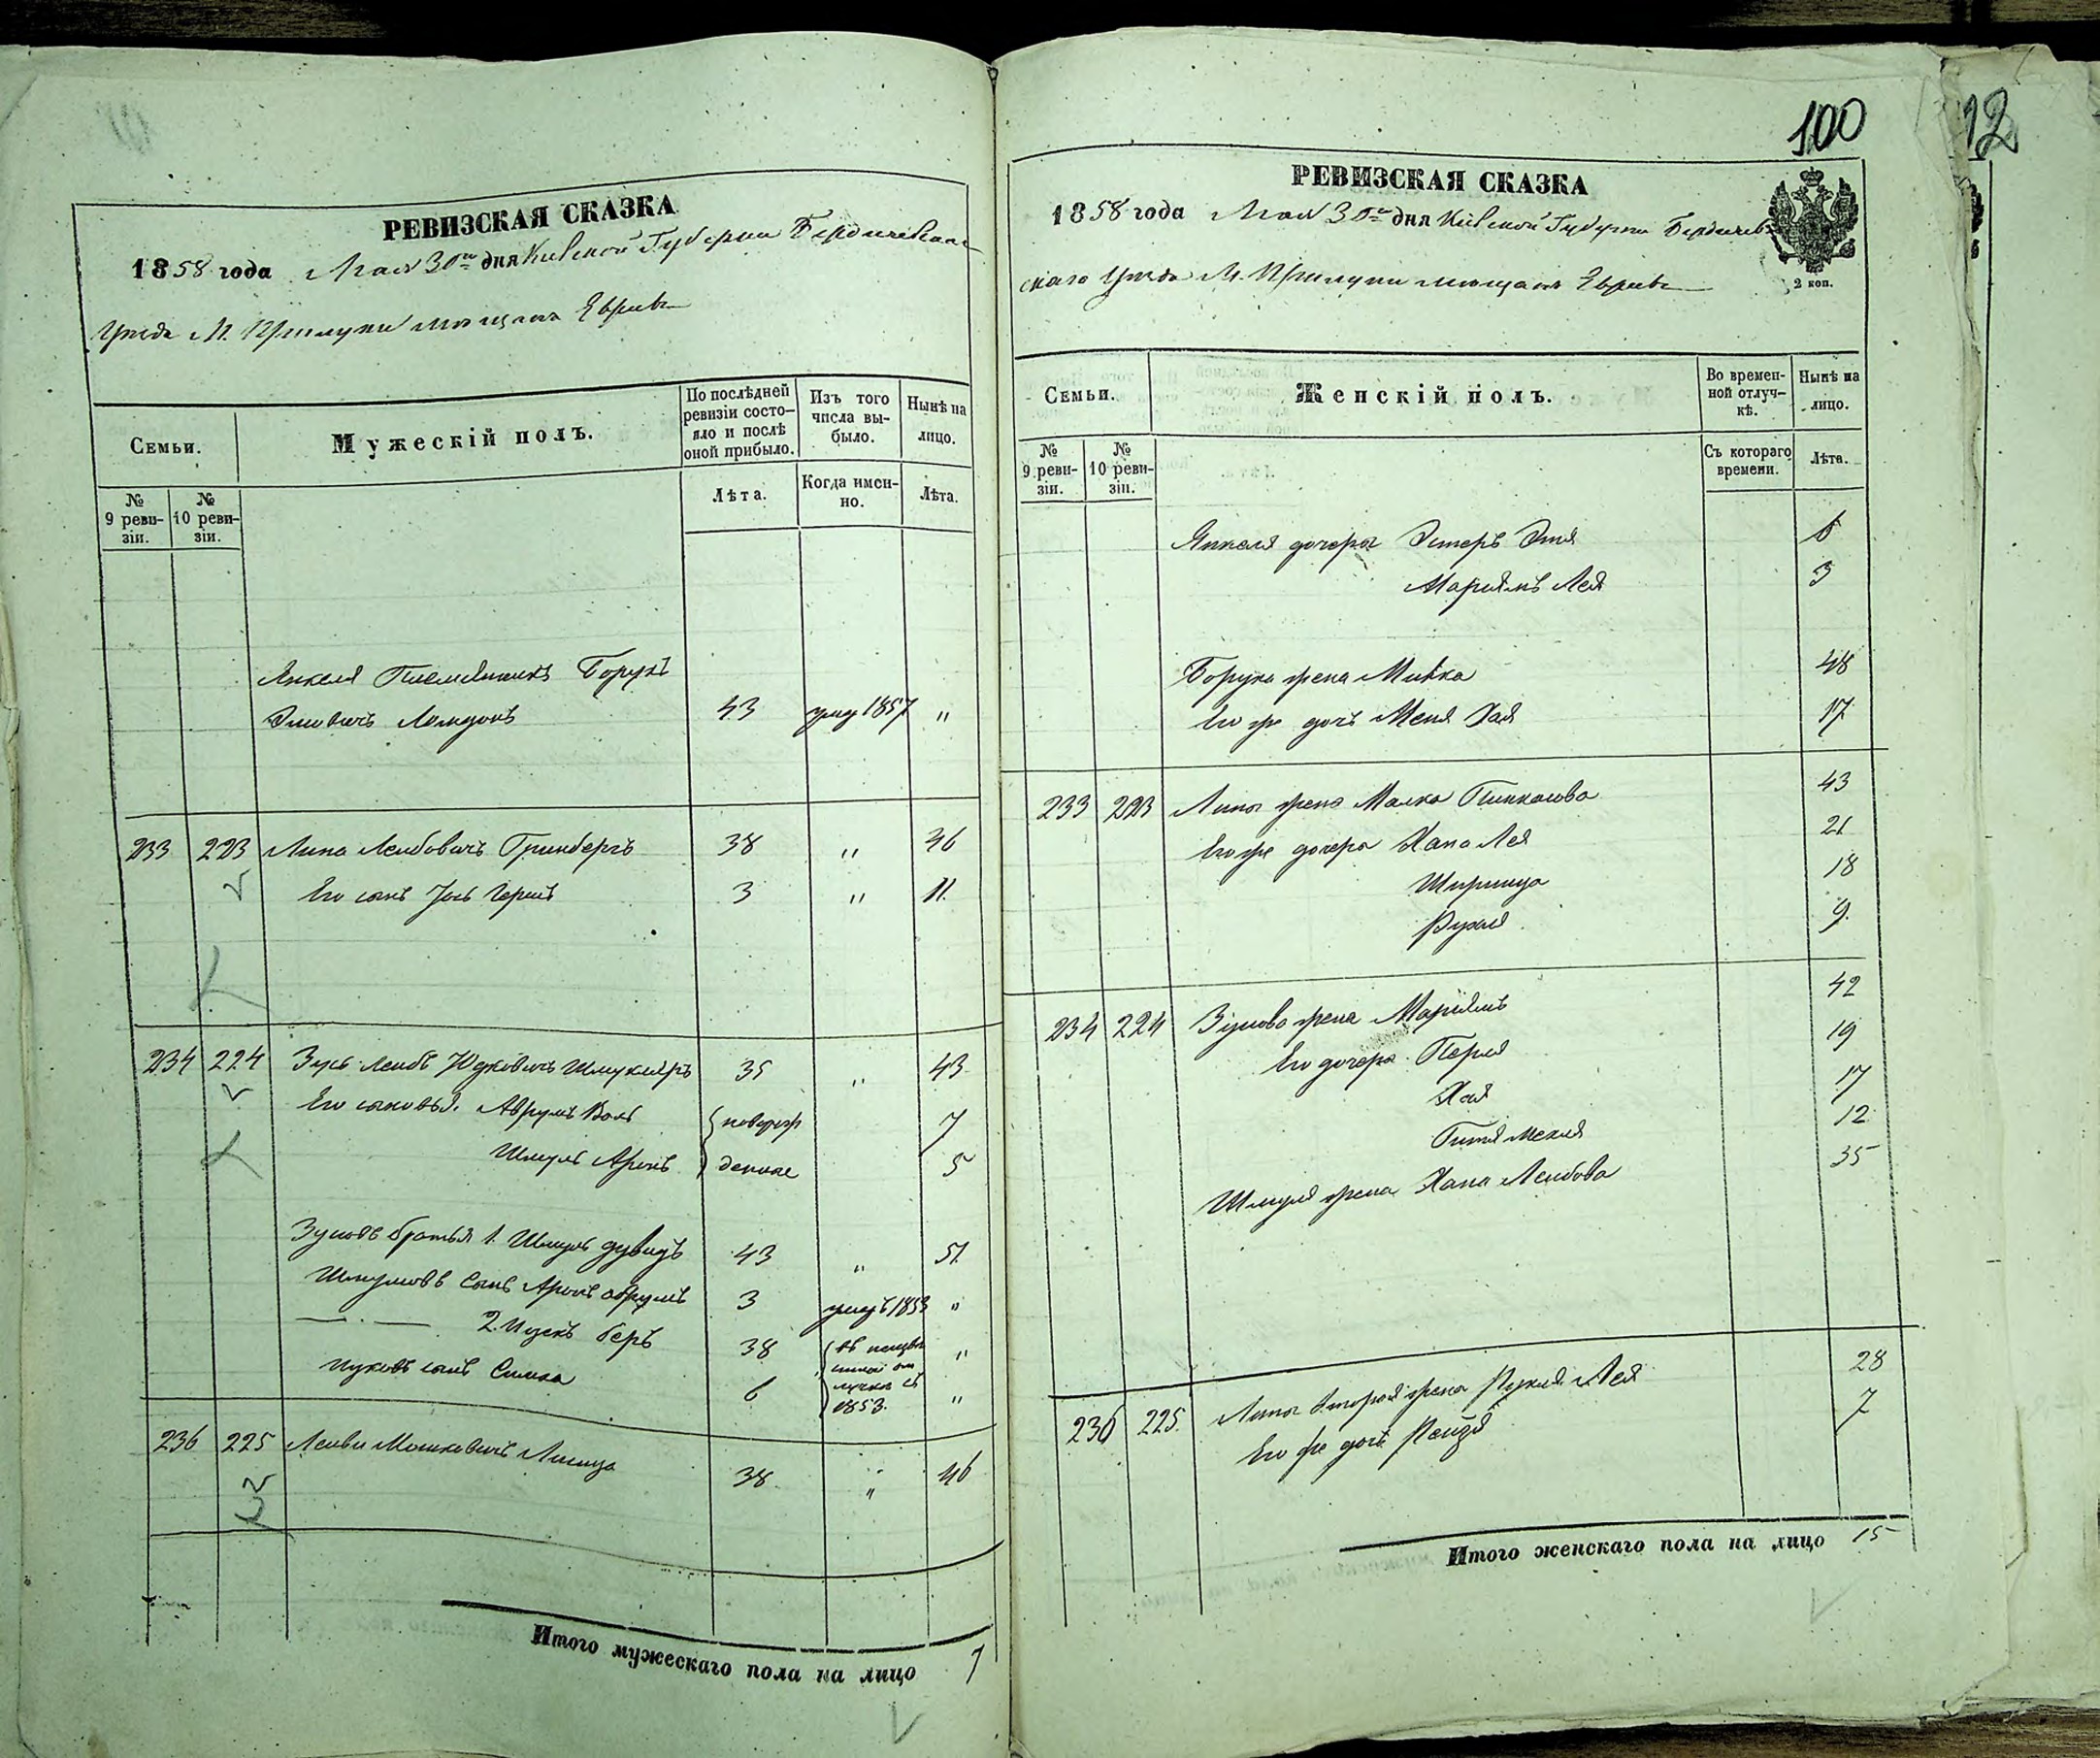 РЕВИЗСКАЯ СКАЗКА
1858 года Мая 30го дня Киевской Губернии Бердичевскаго
уезда М. Прилуки мещанъ Евреевъ
Семьи.
Мужескій полъ.
По послѣдней ревизіи состояло и послѣ оной прибыло.
Изъ того числа выбыло.
Нынѣ на лицо.
№ 9 ревизіи.
№ 10 ревизіи.
Лѣта.
Когда именно.
Лѣта.
Янкеля Племянникъ Борухъ
43 умер 1857 "
233 223 Липа Лейбовичъ Гринбергъ 38 " 46
Его сынъ Іось Гершъ 3 " 11.
234 224 Зусь Лейбъ Юдковичъ Шмуклеръ 35 " 43
Его сыновья. Аврумъ Волъ новорож 7
Шмуль Аронъ денные 5
Зусовъ братья 1. Шмуль Дувидъ 43 " 51.
Шмулювъ Сынъ Аронъ Аврумъ 3 умеръ 1853 "
2. Ицекъ Беръ 38 "
Ицковъ сынъ Симха 6 1853. "
236 225 Лейви Мошковичъ 38 " 46
Итого мужескаго пола на лицо 7
100
12
РЕВИЗСКАЯ СКАЗКА
1858 года Мая 30го дня Киевской Губернии Бердичев
скаго Уезда М. Прилуки мещанъ Евреевъ
2 коп.
Семьи.
Женскій полъ.
Во временной отлучкѣ.
Нынѣ на лицо.
№ 9 ревизіи.
№ 10 ревизіи.
Съ котораго времени.
Лѣта.
Янкеля дочери Эстеръ Этя 6
Маріямъ Лея 3
Боруха жена Мивка 48
Его же дочь Меня Хая 17
233 223 Липы жена Малка Пинкасова 43
Его же дочери Хана Лея 21
Шпринца 18
Рухля 9.
234 224 Зусова жена Маріямъ 42
Его дочери. Перля 19
Хая 17
Гитля 12
Шмуля жена Хана Лейбова 35
236 225. жена Рухля Лея 28
Его же дочь Рейзя 7
Итого женскаго пола на лицо 15